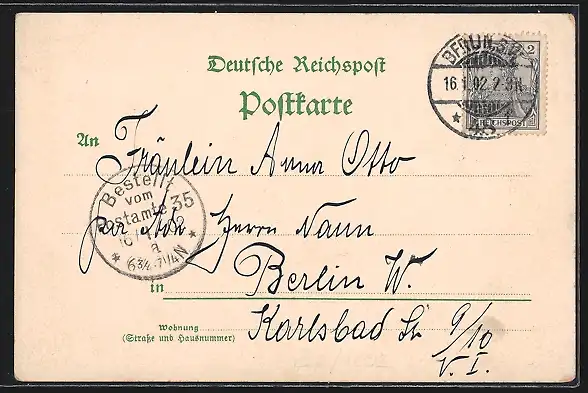 Deutsche Reichspost
Postkarte
BERLIN S.W.
16.1.02.2-3N.
2
REICHSPOST
An Fräulein Anna Otto
Bestellt
vom
Postamte 35
16/1 02
a
6¾-7¼N
per Adr Herrn Nann
in Berlin W.
Wohnung
(Straße und Hausnummer)
Karlsbad St. 9/10
V. I.